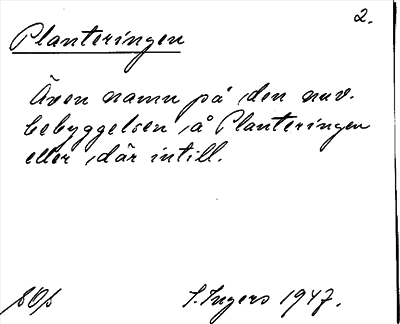 2.
Planteringen
Även namn på den nuv.
bebyggelsen å Planteringen
eller där intill.
I. Ingers 1947.